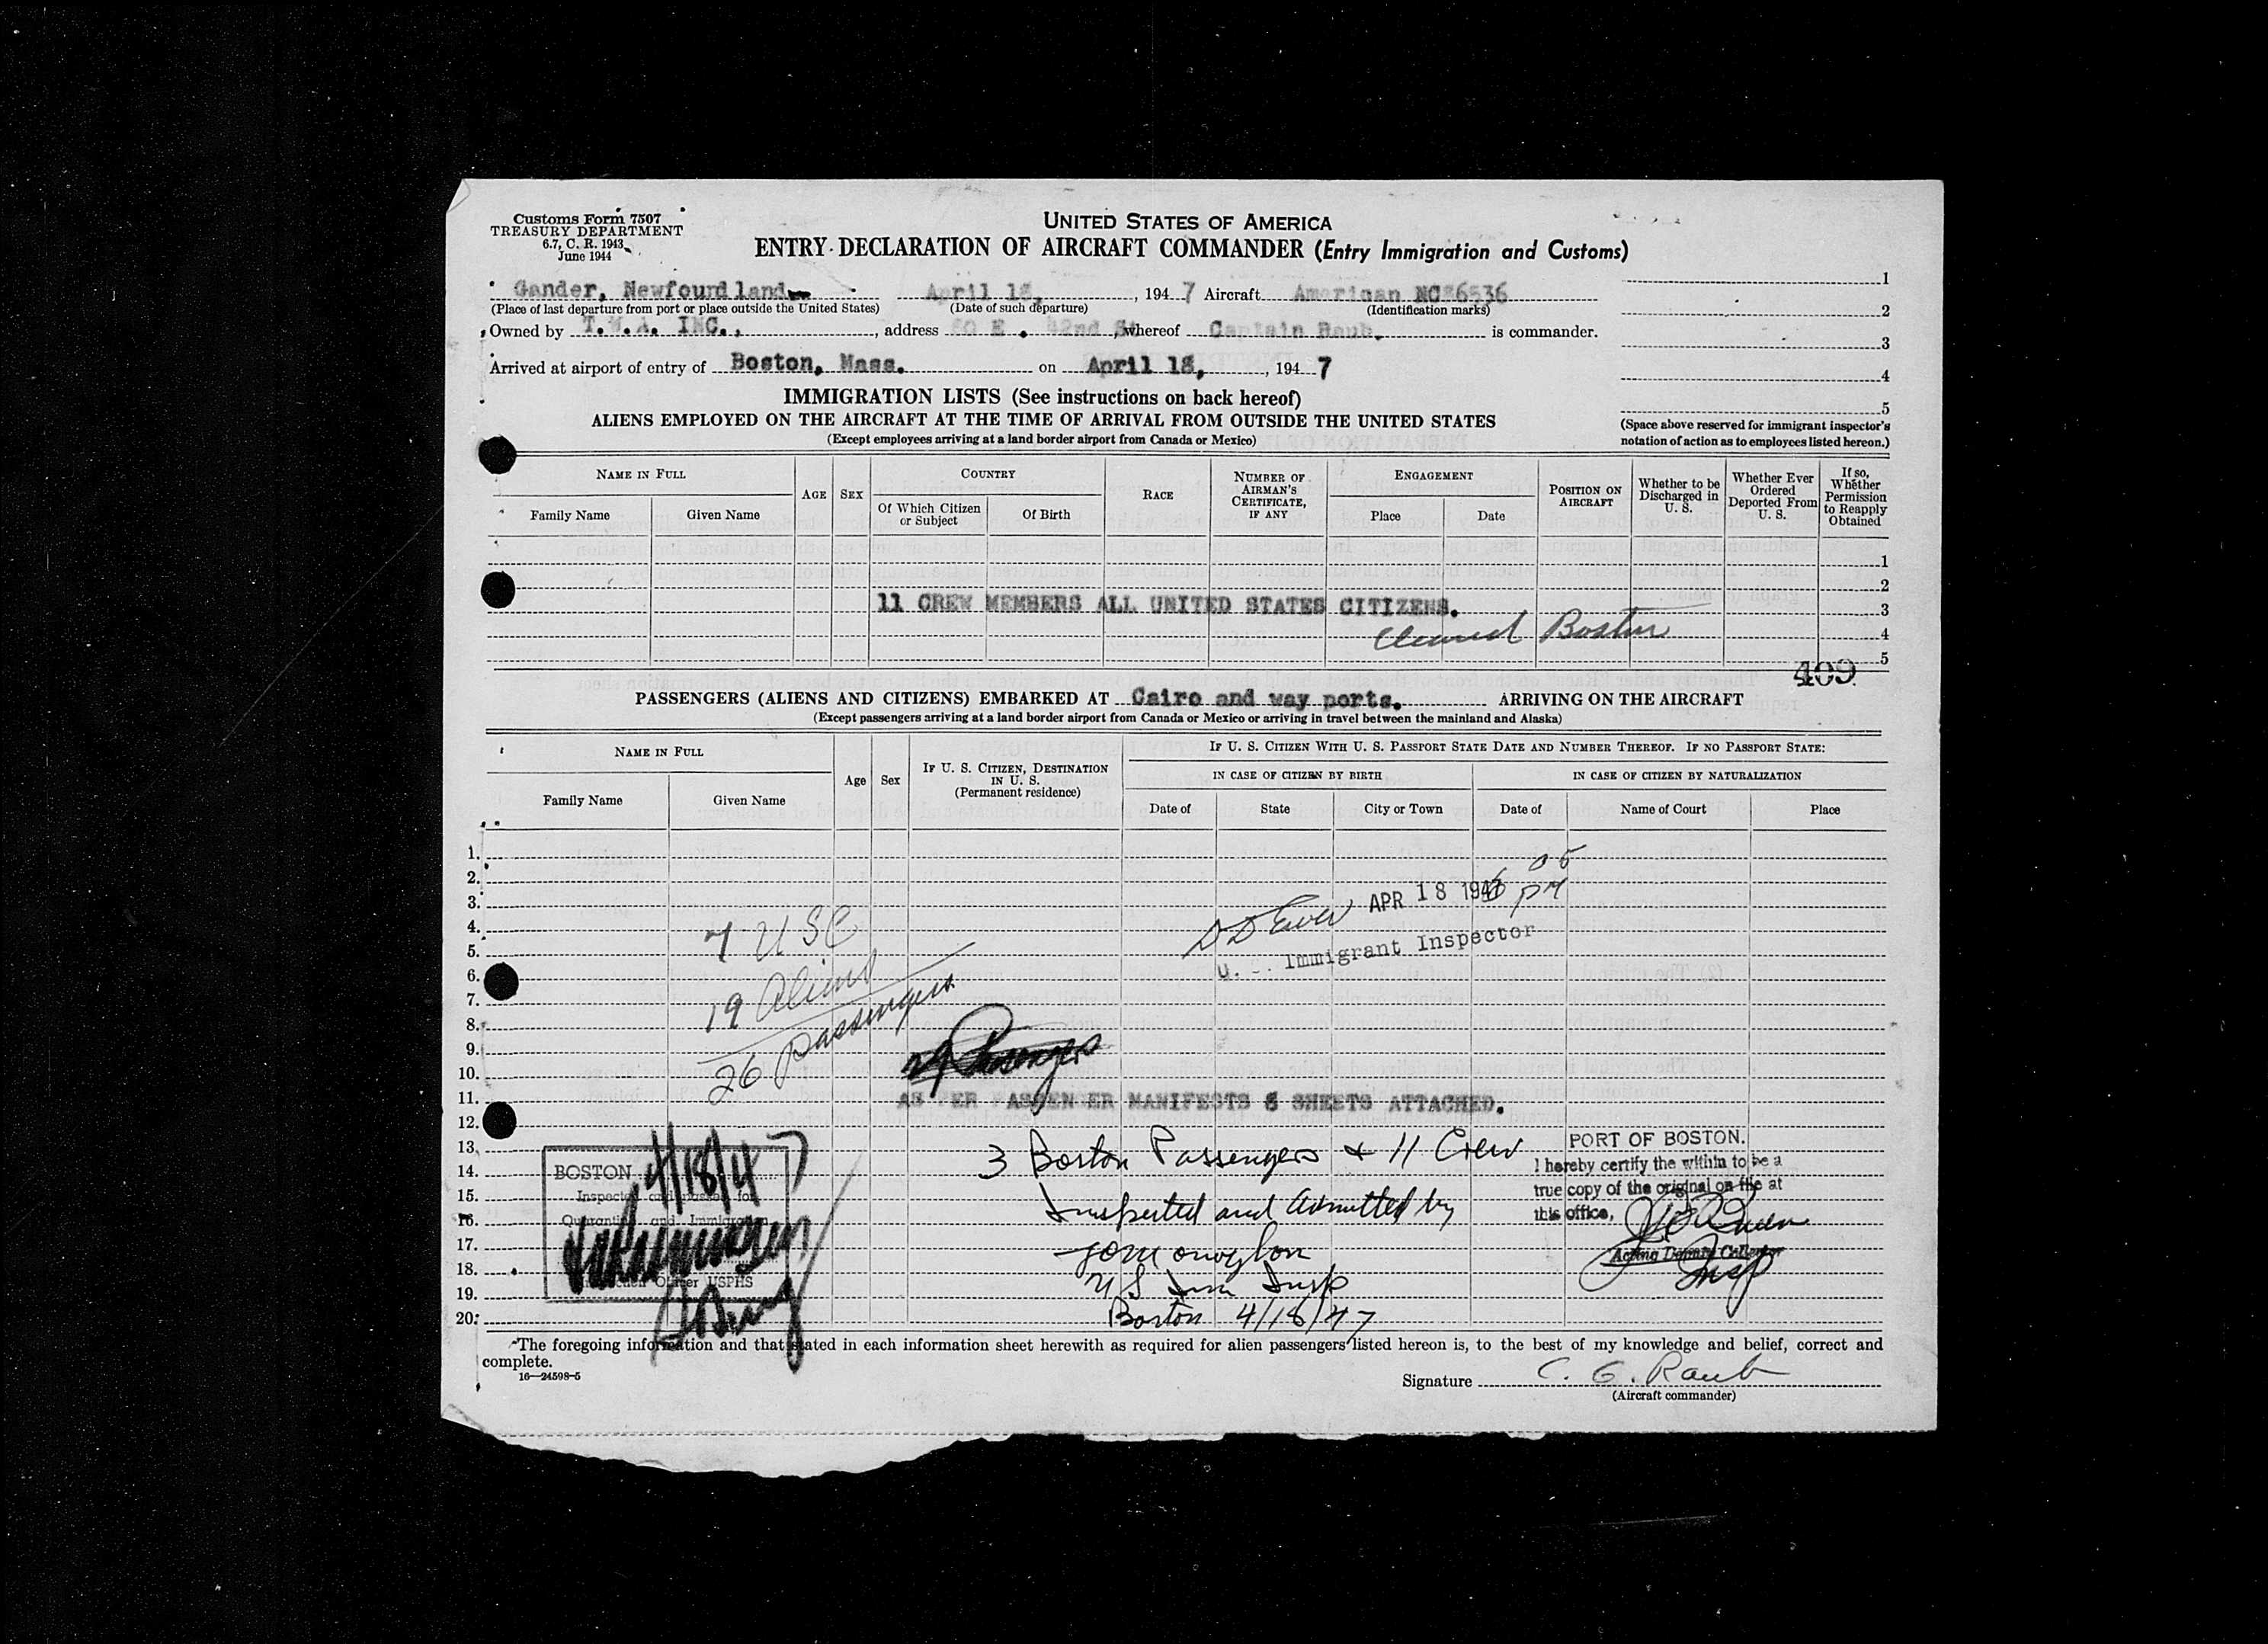 Customs Form 7507
TREASURY DEPARTMENT
6.7, C. R. 1943
June 1944
UNITED STATES OF AMERICA
ENTRY DECLARATION OF AIRCRAFT COMMANDER (Entry Immigration and Customs)
Gander, Newfoundland April 18, , 194 7 Aircraft American NC 86536
(Place of last departure from port or place outside the United States) (Date of such departure) (Identification marks)
Owned by T.W.A. INC., , address 60 E. 42nd St , whereof Captain Raub. is commander.
Arrived at airport of entry of Boston, Mass. on April 18, , 194 7
1
2
3
4
5
(Space above reserved for immigrant inspector's notation of action as to employees listed hereon.)
IMMIGRATION LISTS (See instructions on back hereof)
ALIENS EMPLOYED ON THE AIRCRAFT AT THE TIME OF ARRIVAL FROM OUTSIDE THE UNITED STATES
(Except employees arriving at a land border airport from Canada or Mexico)
NAME IN FULL
Family Name Given Name
AGE SEX
COUNTRY
Of Which Citizen or Subject Of Birth
RACE
NUMBER OF AIRMAN'S CERTIFICATE, IF ANY
ENGAGEMENT
Place Date
POSITION ON AIRCRAFT
Whether to be Discharged in U. S.
Whether Ever Ordered Deported From U. S.
If so, Whether Permission to Reapply Obtained
1
2
11 CREW MEMBERS ALL UNITED STATES CITIZENS. 3
Cleared Boston 4
5
409
PASSENGERS (ALIENS AND CITIZENS) EMBARKED AT Cairo and way ports. ARRIVING ON THE AIRCRAFT
(Except passengers arriving at a land border airport from Canada or Mexico or arriving in travel between the mainland and Alaska)
NAME IN FULL
Family Name Given Name
Age Sex
IF U. S. CITIZEN, DESTINATION IN U. S.
(Permanent residence)
IF U. S. CITIZEN WITH U. S. PASSPORT STATE DATE AND NUMBER THEREOF. IF NO PASSPORT STATE:
IN CASE OF CITIZEN BY BIRTH IN CASE OF CITIZEN BY NATURALIZATION
Date of State City or Town Date of Name of Court Place
1.
2.
3.
4.
5.
6.
7.
8.
9.
10.
11.
12.
13.
14.
15.
16.
17.
18.
19.
20.
APR 18 1947 6 05 PM
U. S. Immigrant Inspector
7 USC
19 Aliens
26 passengers
Passengers
AS PER PASSENGER MANIFESTS 8 SHEETS ATTACHED.
3 Boston Passengers & 11 Crew
Inspected and Admitted by
U S Imm Insp
Boston 4/18/47
BOSTON 4/18/47
Inspected and passed for
Quarantine and Immigration
Officer USPHS
PORT OF BOSTON.
I hereby certify the within to be a
true copy of the original on file at
this office,
Acting Deputy Collector
Insp
The foregoing information and that stated in each information sheet herewith as required for alien passengers listed hereon is, to the best of my knowledge and belief, correct and
complete.
16—24598-5
Signature C. G. Raub
(Aircraft commander)